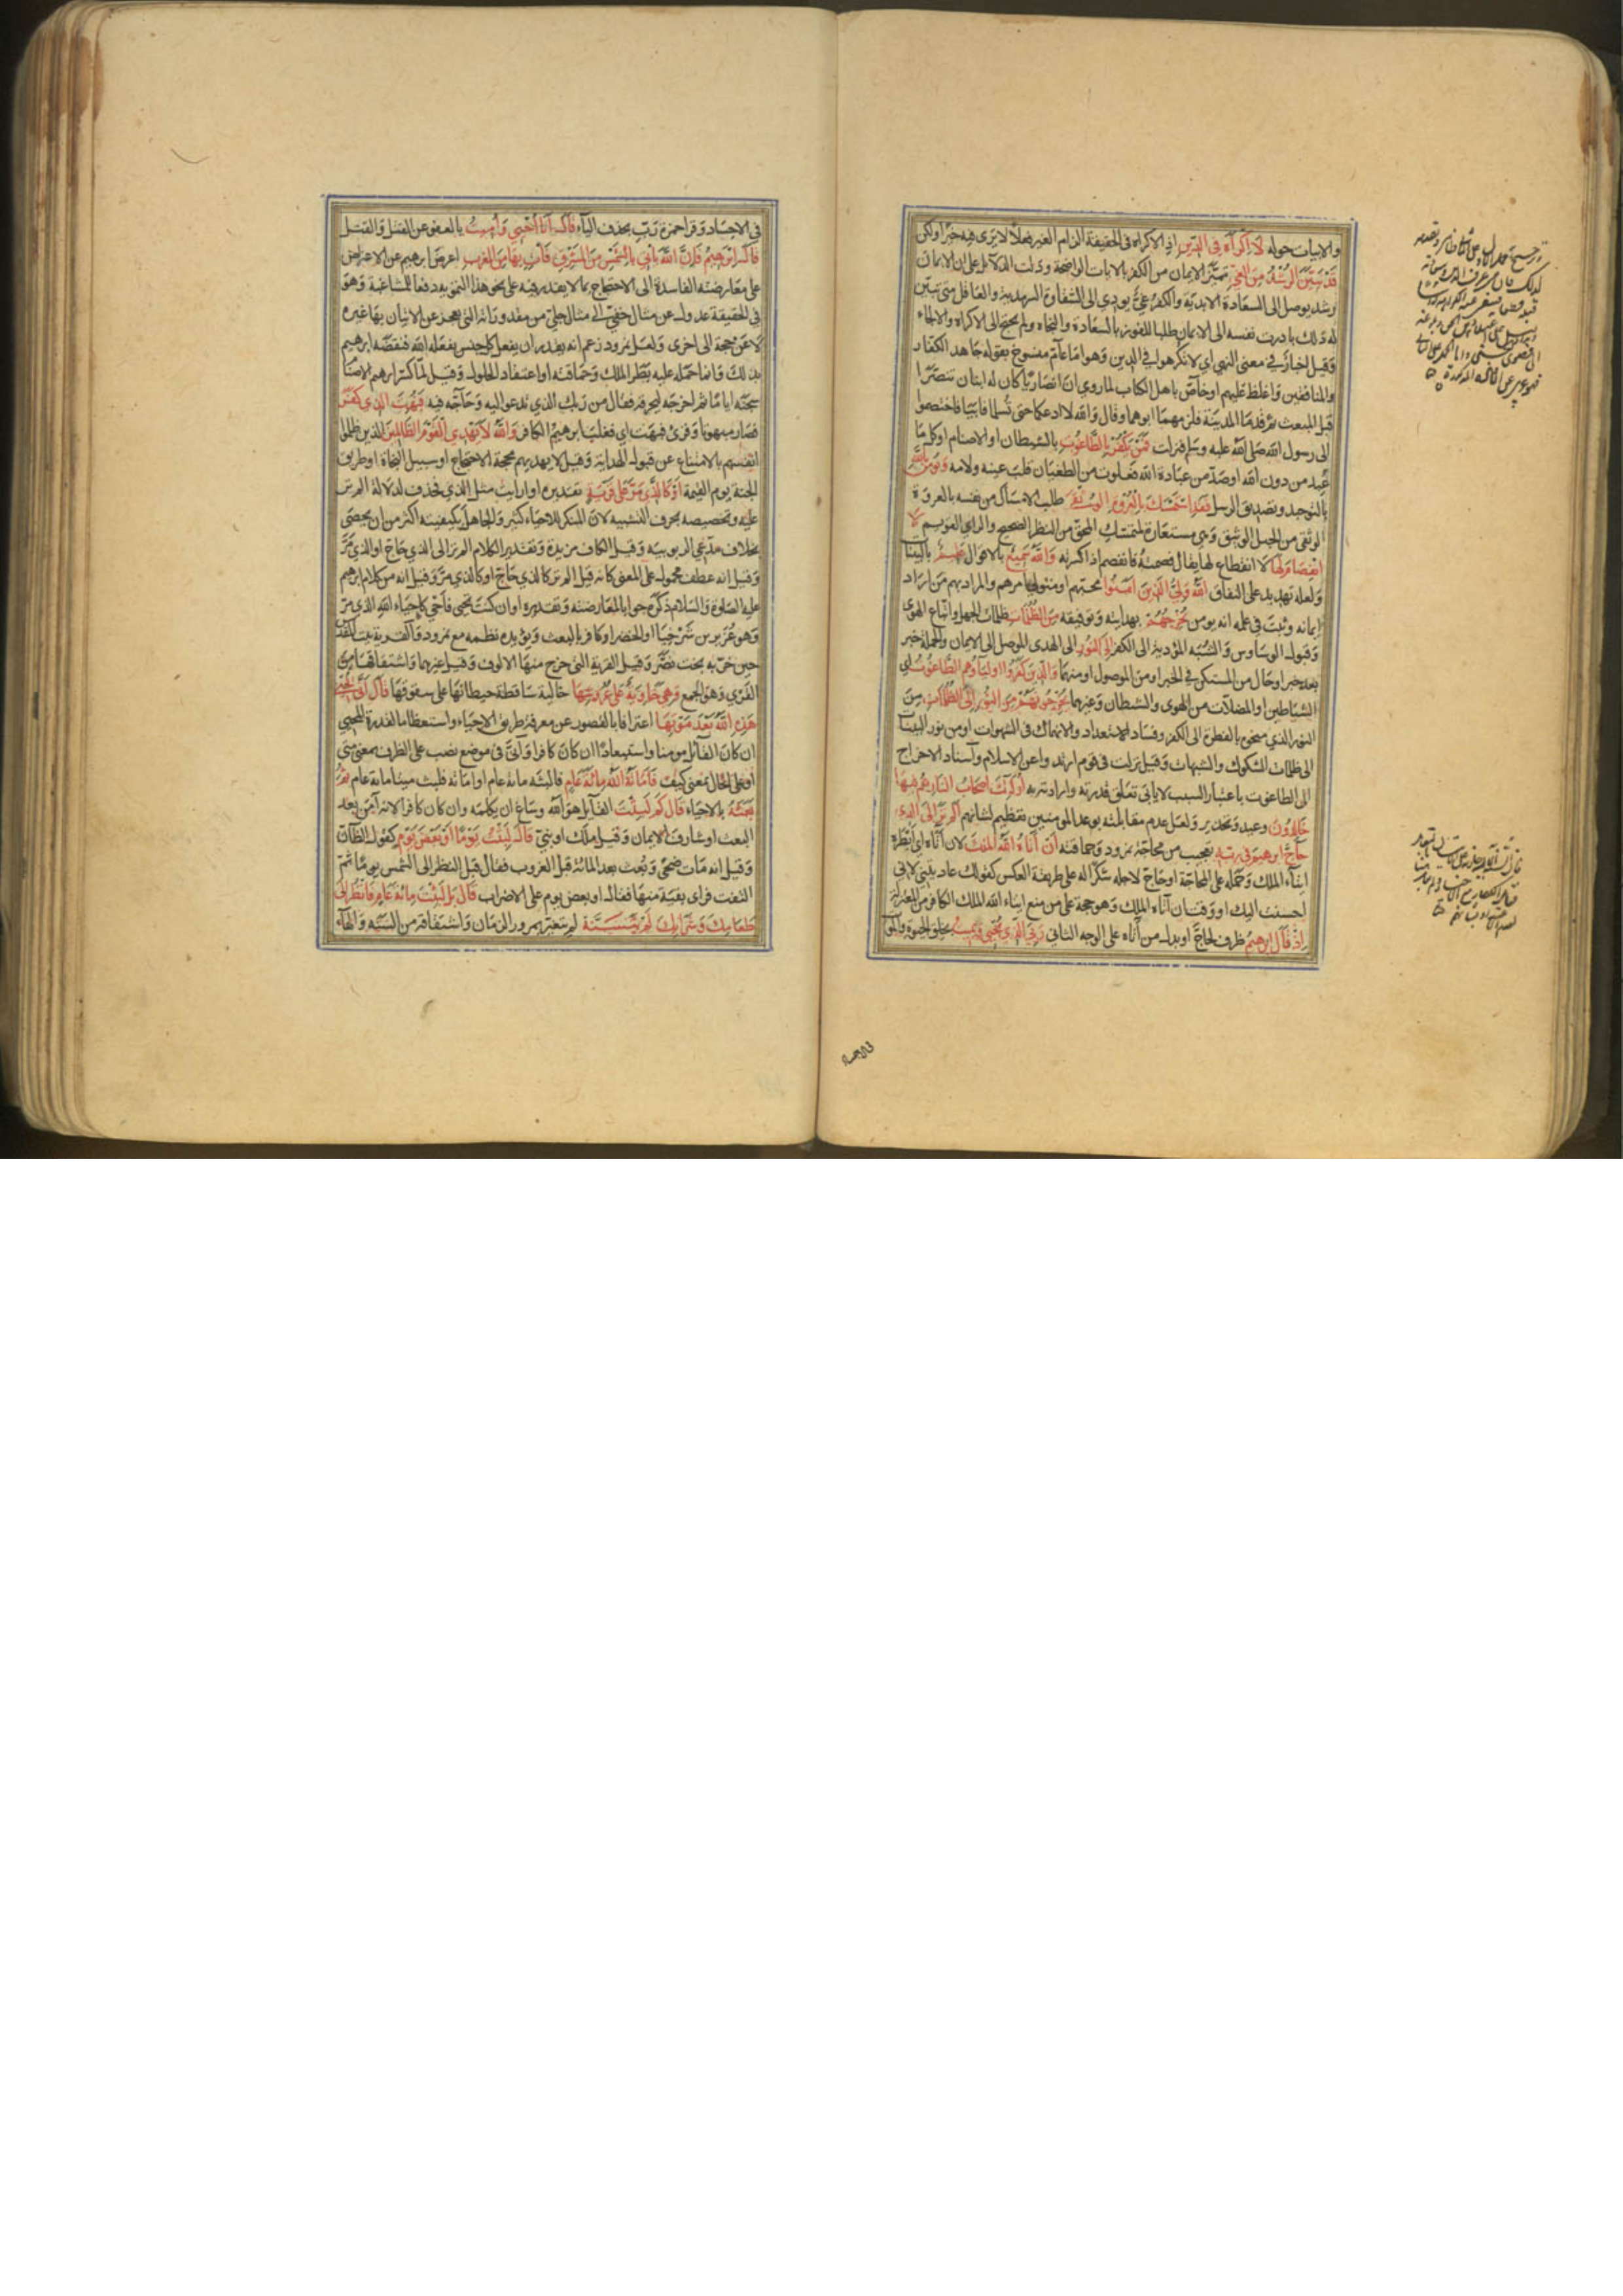 والابيات حوله لا اكراه في الدين اذ الاكراه في الحقيقة الزام الغير فعلا لا يرى فيه خيرا ولكن
قد تبين الرشد من الغي تميز الايمان من الكفر بالايات الواضحة ودلت الدلائل على ان الايمان
رشد يوصل الى السعادة الابدية والكفر غي يودي الى الشقاوة السرمدية والعاقل متى تبين
له ذلك بادرت نفسه الى الايمان طلبا للفوز بالسعادة والنجاة ولم يحتج الى الاكراه والالجاء
وقيل اخبار في معنى النهي اي لا تكرهوا في الدين وهو اما عام منسوخ بقوله جاهد الكفار
والمنافقين واغلظ عليهم او خاص باهل الكتاب لما روي ان انصاريا كان له ابنان تنصرا
قبل المبعث ثم قدما المدينة فلزمهما ابوهما وقال والله لا ادعكما حتى تسلما فابيا فاختصموا
الى رسول الله صلى الله عليه وسلم فنزلت فمن يكفر بالطاغوت بالشيطان او الاصنام او كل ما
عبد من دون الله او صد من عبادة الله فعلوت من الطغيان قلب عينه ولامه ويؤمن بالله
بالتوحيد وتصديق الرسل فقد استمسك بالعروة الوثقى طلب الامساك من نفسه بالعروة
الوثقى من الحبل الوثيق وهي مستعارة لمتمسك المحق من النظر الصحيح والراي القويم لا
انفصام لها لا انقطاع لها يقال فصمته فانفصم اذا كسرته والله سميع بالاقوال عليم بالنيات
ولعله تهديد على النفاق الله ولي الذين آمنوا محبهم او متولي امرهم والمراد بهم من اراد
ايمانه وثبت في علمه انه يومن يخرجهم بهدايته وتوفيقه من الظلمات ظلمات الجهل واتباع الهوى
وقبول الوساوس والشبه المؤدية الى الكفر الى النور الى الهدى الموصل الى الايمان والجملة خبر
بعد خبر او حال من المستكن في الخبر او من الموصول او منهما والذين كفروا اولياؤهم الطاغوت اي
الشياطين او المضلات من الهوى والشيطان وغيرهما يخرجونهم من النور الى الظلمات من
النور الذي منحوه بالفطرة الى الكفر وفساد الاستعداد والانهماك في الشهوات او من نور البينات
الى ظلمات الشكوك والشبهات وقيل نزلت في قوم ارتدوا عن الاسلام واسناد الاخراج
الى الطاغوت باعتبار السبب لا يابى تعلق قدرته وارادته به اولئك اصحاب النار هم فيها
خالدون وعيد وتحذير ولعل عدم مقابلته بوعد المومنين تعظيم لشانهم الم تر الى الذي
حاج ابرهيم في ربه تعجيب من محاجة نمرود وحماقته ان آتاه الله الملك لان آتاه اي ابطره
ايتاء الملك وحمله على المحاجة او حاج لاجله شكرا له على طريقة العكس كقولك عاديتني لاني
احسنت اليك او وقت ان آتاه الملك وهو حجة على من منع ايتاء الله الملك الكافر من المعتزلة
اذ قال ابرهيم ظرف لحاج او بدل من آتاه على الوجه الثاني ربي الذي يحيي ويميت بخلق الحيوة والموت
في الاجساد وقرا حمزة رب بحذف الياء قال انا احيي واميت بالعفو عن القتل والقتل
قال ابرهيم فان الله ياتي بالشمس من المشرق فات بها من المغرب اعرض ابرهيم عن الاعتراض
على معارضته الفاسدة الى الاحتجاج بما لا يقدر فيه على نحو هذا التمويه دفعا للمشاغبة وهو
في الحقيقة عدول عن مثال خفي الى مثال جلي من مقدوراته التي يعجز عن الاتيان بها غيره
لا عن حجة الى اخرى ولعل نمرود زعم انه يقدر ان يفعل كل جنس يفعله الله فنقضه ابرهيم
بذلك وانما حمله عليه بطر الملك وحماقته او اعتقاد الحلول وقيل لما كسر ابرهيم الاصنام
سجنه اياما ثم اخرجه ليحرقه فقال من ربك الذي تدعو اليه وحاجه فيه فبهت الذي كفر
فصار مبهوتا وقرئ فبهت اي فغلب ابرهيم الكافر والله لا يهدي القوم الظالمين الذين ظلموا
انفسهم بالامتناع عن قبول الهداية وقيل لا يهديهم محجة الاحتجاج او سبيل النجاة او طريق
الجنة يوم القيمة او كالذي مر على قرية تقديره او ارايت مثل الذي فحذف لدلالة الم تر
عليه وتخصيصه بحرف التشبيه لان المنكر للاحياء كثير والجاهل بكيفيته اكثر من ان يحصى
بخلاف مدعي الربوبية وقيل الكاف مزيدة وتقدير الكلام الم تر الى الذي حاج او الذي مر
وقيل انه عطف محمول على المعنى كانه قيل الم تر كالذي حاج او كالذي مر وقيل انه من كلام ابرهيم
عليه الصلوة والسلام ذكره جوابا لمعارضته وتقديره او ان كنت تحيي فاحي كاحياء الله الذي مر
وهو عزير بن شرخيا او الخضر او كافر بالبعث ويؤيده نظمه مع نمرود والقرية بيت المقدس
حين خربه بخت نصر وقيل القرية التي خرج منها الالوف وقيل غيرهما واشتقاقها من
القري وهو الجمع وهي خاوية على عروشها خالية ساقطة حيطانها على سقوفها قال انى يحيي
هذه الله بعد موتها اعترافا بالقصور عن معرفة طريق الاحياء واستعظاما لقدرة المحيي
ان كان القائل مومنا واستبعادا ان كان كافرا وانى في موضع نصب على الظرف بمعنى متى
او على الحال بمعنى كيف فاماته الله مائة عام فالبثه مائة عام او اماته فلبث ميتا مائة عام ثم
بعثه بالاحياء قال كم لبثت القائل هو الله وساغ ان يكلمه وان كان كافرا لانه آمن بعد
البعث او شارف الايمان وقيل ملك او نبي قال لبثت يوما او بعض يوم كقول الظان
وقيل انه مات ضحى وبعث بعد المائة قبل الغروب فقال قبل النظر الى الشمس يوما ثم
التفت فراى بقية منها فقال او بعض يوم على الاضراب قال بل لبثت مائة عام فانظر الى
طعامك وشرابك لم يتسنه لم يتغير بمرور الزمان واشتقاقه من السنه والهاء